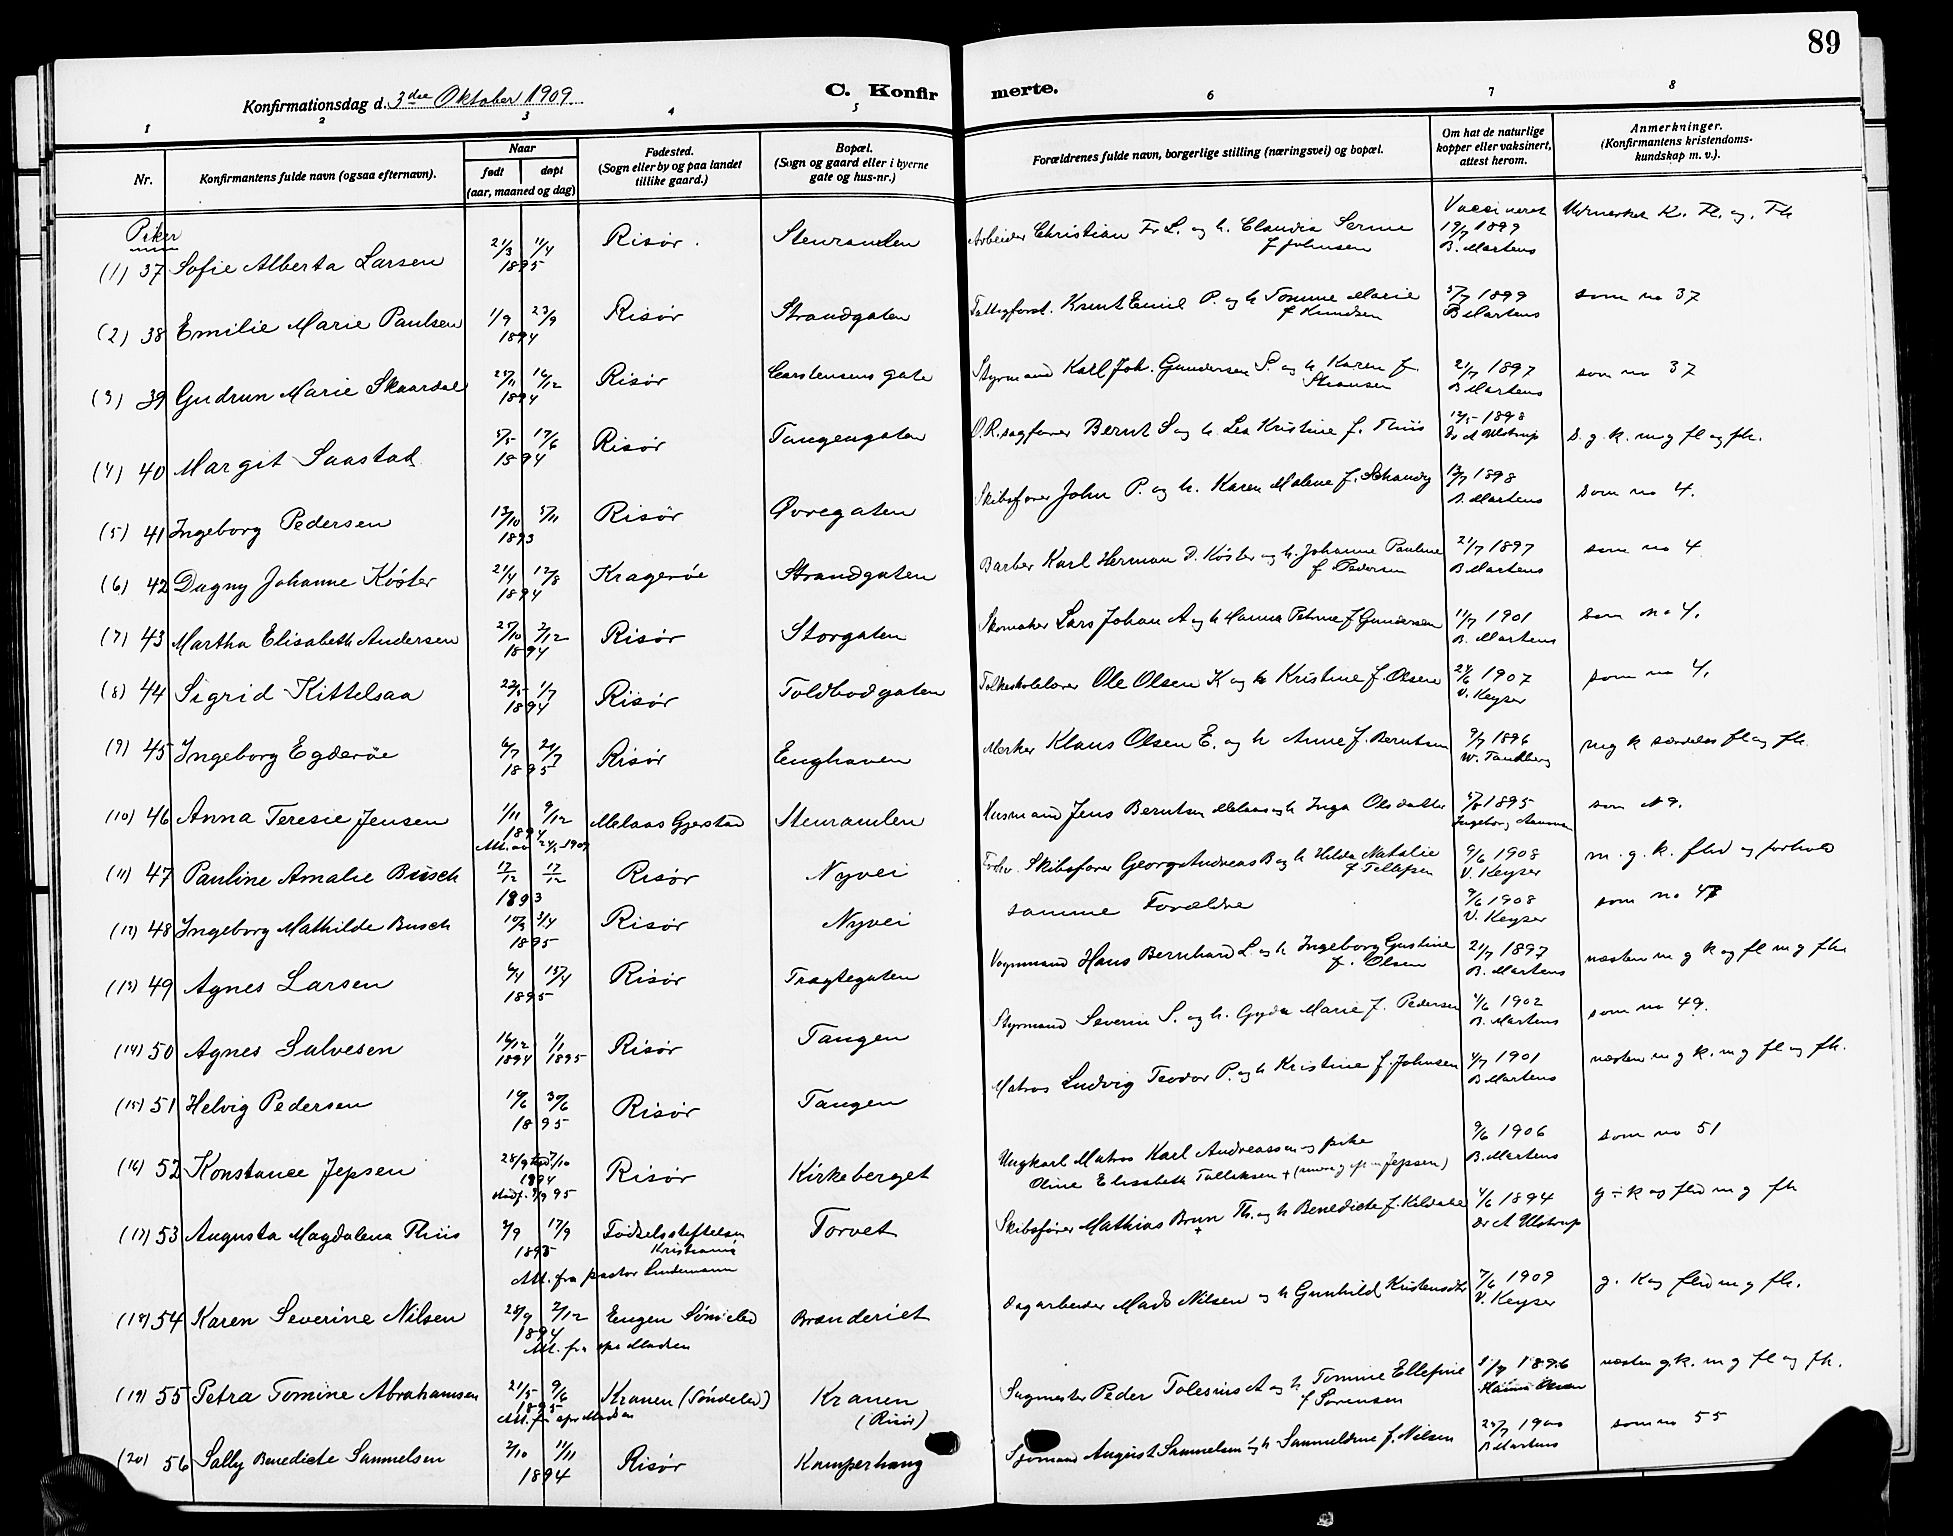 89
Konfirmationsdag d. 3die Oktober 1909.
C. Konfirmerte.
1 2 3 4 5 6 7 8
Nr.
Konfirmantens fulde navn (ogsaa efternavn).
Naar
født døpt
(aar, maaned og dag)
Fødested.
(Sogn eller by og paa landet
tillike gaard.)
Bopæl.
(Sogn og gaard eller i byerne
gate og hus-nr.)
Forældrenes fulde navn, borgerlige stilling (næringsvei) og bopæl.
Om hat de naturlige
kopper eller vaksinert,
attest herom.
Anmerkninger.
(Konfirmantens kristendoms-
kundskap m. v.).
Piker
(1) 37 Sofie Alberta Larsen 21/3 11/4 1895 Risør. Stenramlen Arbeider Christian Fr L. og h. Claudia Serine f Johnsen Vaccineret 19/7 1899 B. Martens Udmerket K. Fl. og. Fh
(2) 38 Emilie Marie Paulsen 1/9 23/9 1894 Risør Strandgaten Knut Emil P. og h Tomine Marie f Knudsen 5/7 1899 B Martens som no 37
(3) 39 Gudrun Marie Skaardal 25/11 16/12 1894 Risør Carstensens gate Styrmand Karl Joh. Gundersen S. og h Karen f. 21/7 1897 B Martens som no 37
(4) 40 Margit Saastad 5/5 17/6 1894 Risør Tangengaten O.R.sagfører Bernt S og h. Lea Kristine f. Thiis 12/5 1898 Dr A Ulstrup s. g. k. m g fl og fh.
(5) 41 Ingeborg Pedersen 12/10 5/11 1893 Risør Øvregaten Skibsfører John P. og h. Karen Malene f. 13/7 1898 B. Martens som no 4.
(6) 42 Dagny Johanne Køster 21/4 12/8 1894 Kragerøe Strandgaten Barber Karl Herman D. Køster og h. Johanne Pauline f. Pedersen 21/7 1897 B Martens som no 4
(7) 43 Martha Elisabeth Andersen 25/10 2/12 1894 Risør Storgaten Skomaker Lars Johan A og h Hanna Petrine f Gundersen 11/7 1901 B. Martens som no 4.
(8) 44 Sigrid Kittelsaa 22/5 1/7 1894 Risør Toldbodgaten Folkeskolelærer Ole Olsen K og h Kristine f. Olsen 24/6 1907 V. Keyser som no 4.
(9) 45 Ingeborg Egderøe 6/7 21/7 1895 Risør Enghaven Merker Klaus Olsen E. og h Anne f. Berntsen 9/7 1896 W. Tandberg mg k særdeles fl og fh.
(10) 46 Anna Teresie Jensen 1/11 9/12 1894 Melaas Gjerstad Stenramlen Husmand Jens Berntsen Melaas og h Inga Olsdatter 5/8 1895 Ingeborg Aamen som N 9.
(11) 47 Pauline Amalie Busch 17/12 17/12 1893 Risør Nyvei Skibsfører Georg Andreas B og h Hilda Natalie f Tellefsen 9/6 1908 V. Keyser m. g. k. flid og forhold
(12) 48 Ingeborg Mathilde Busch 10/3 3/4 1895 Risør Nyvei samme Forældre 9/6 1908 V. Keyser som no 47
(13) 49 Agnes Larsen 6/4 15/4 1895 Risør Tragtegaten Vognmand Hans Bernhard L. og h Ingeborg Gustine f. Olsen 21/7 1897 B. Martens næsten m g k og fl m g fh
(14) 50 Agnes Salvesen 16/12 1894 1/1 1895 Risør Tangen Styrmand Severin S. og h. Gyda Marie f. Pedersen 4/6 1902 B. Martens som no 49.
(15) 51 Helvig Pedersen 16/6 30/6 1895 Risør Tangen Matros Ludvig Teodor P. og h Kristine f. Johnsen 4/7 1901 B Martens næsten m g k. m g fl og fh.
(16) 52 Konstance Jepsen 28/9 7/10 1894 Risør Kirkeberget Ungkarl Matros Karl Andreassen og pike Oline Elisabeth Tallaksen 9/6 1906 B. Martens som no 51
(17) 53 Augusta Magdalena Riis 2/9 17/9 1895 Fødselsstiftelsen Kristiania Torvet Skibsfører Mathias Brun Th. og h Benedicte f. 4/6 1894 Dr A Ulstrup g ÷ k og flid m g fh
Att. fra pastor Lindemann
(18) 54 Karen Severine Nilsen 28/9 2/12 1894 Eugen Søndeled Branderiet Dagarbeider Mads Nilsen og h Gunhild Kristensdtr 7/6 1909 V. Keyser g. K og flid m g fh.
(19) 55 Petra Tomine Abrahamsen 21/5 9/6 1895 Kranen (Søndeled) Kranen (Risør) Sagmester Peder Tolesius A og h Tomine Ellefine f Sørensen 1896 næsten g.k. m g fl og fh.
(20) 56 Sally Benedicte Samuelsen 2/10 11/11 1894 Risør Kamperhaug Sjømand August Samuelsen og h Samueline f. Nilsen 25/7 1900 B Martens som no 55